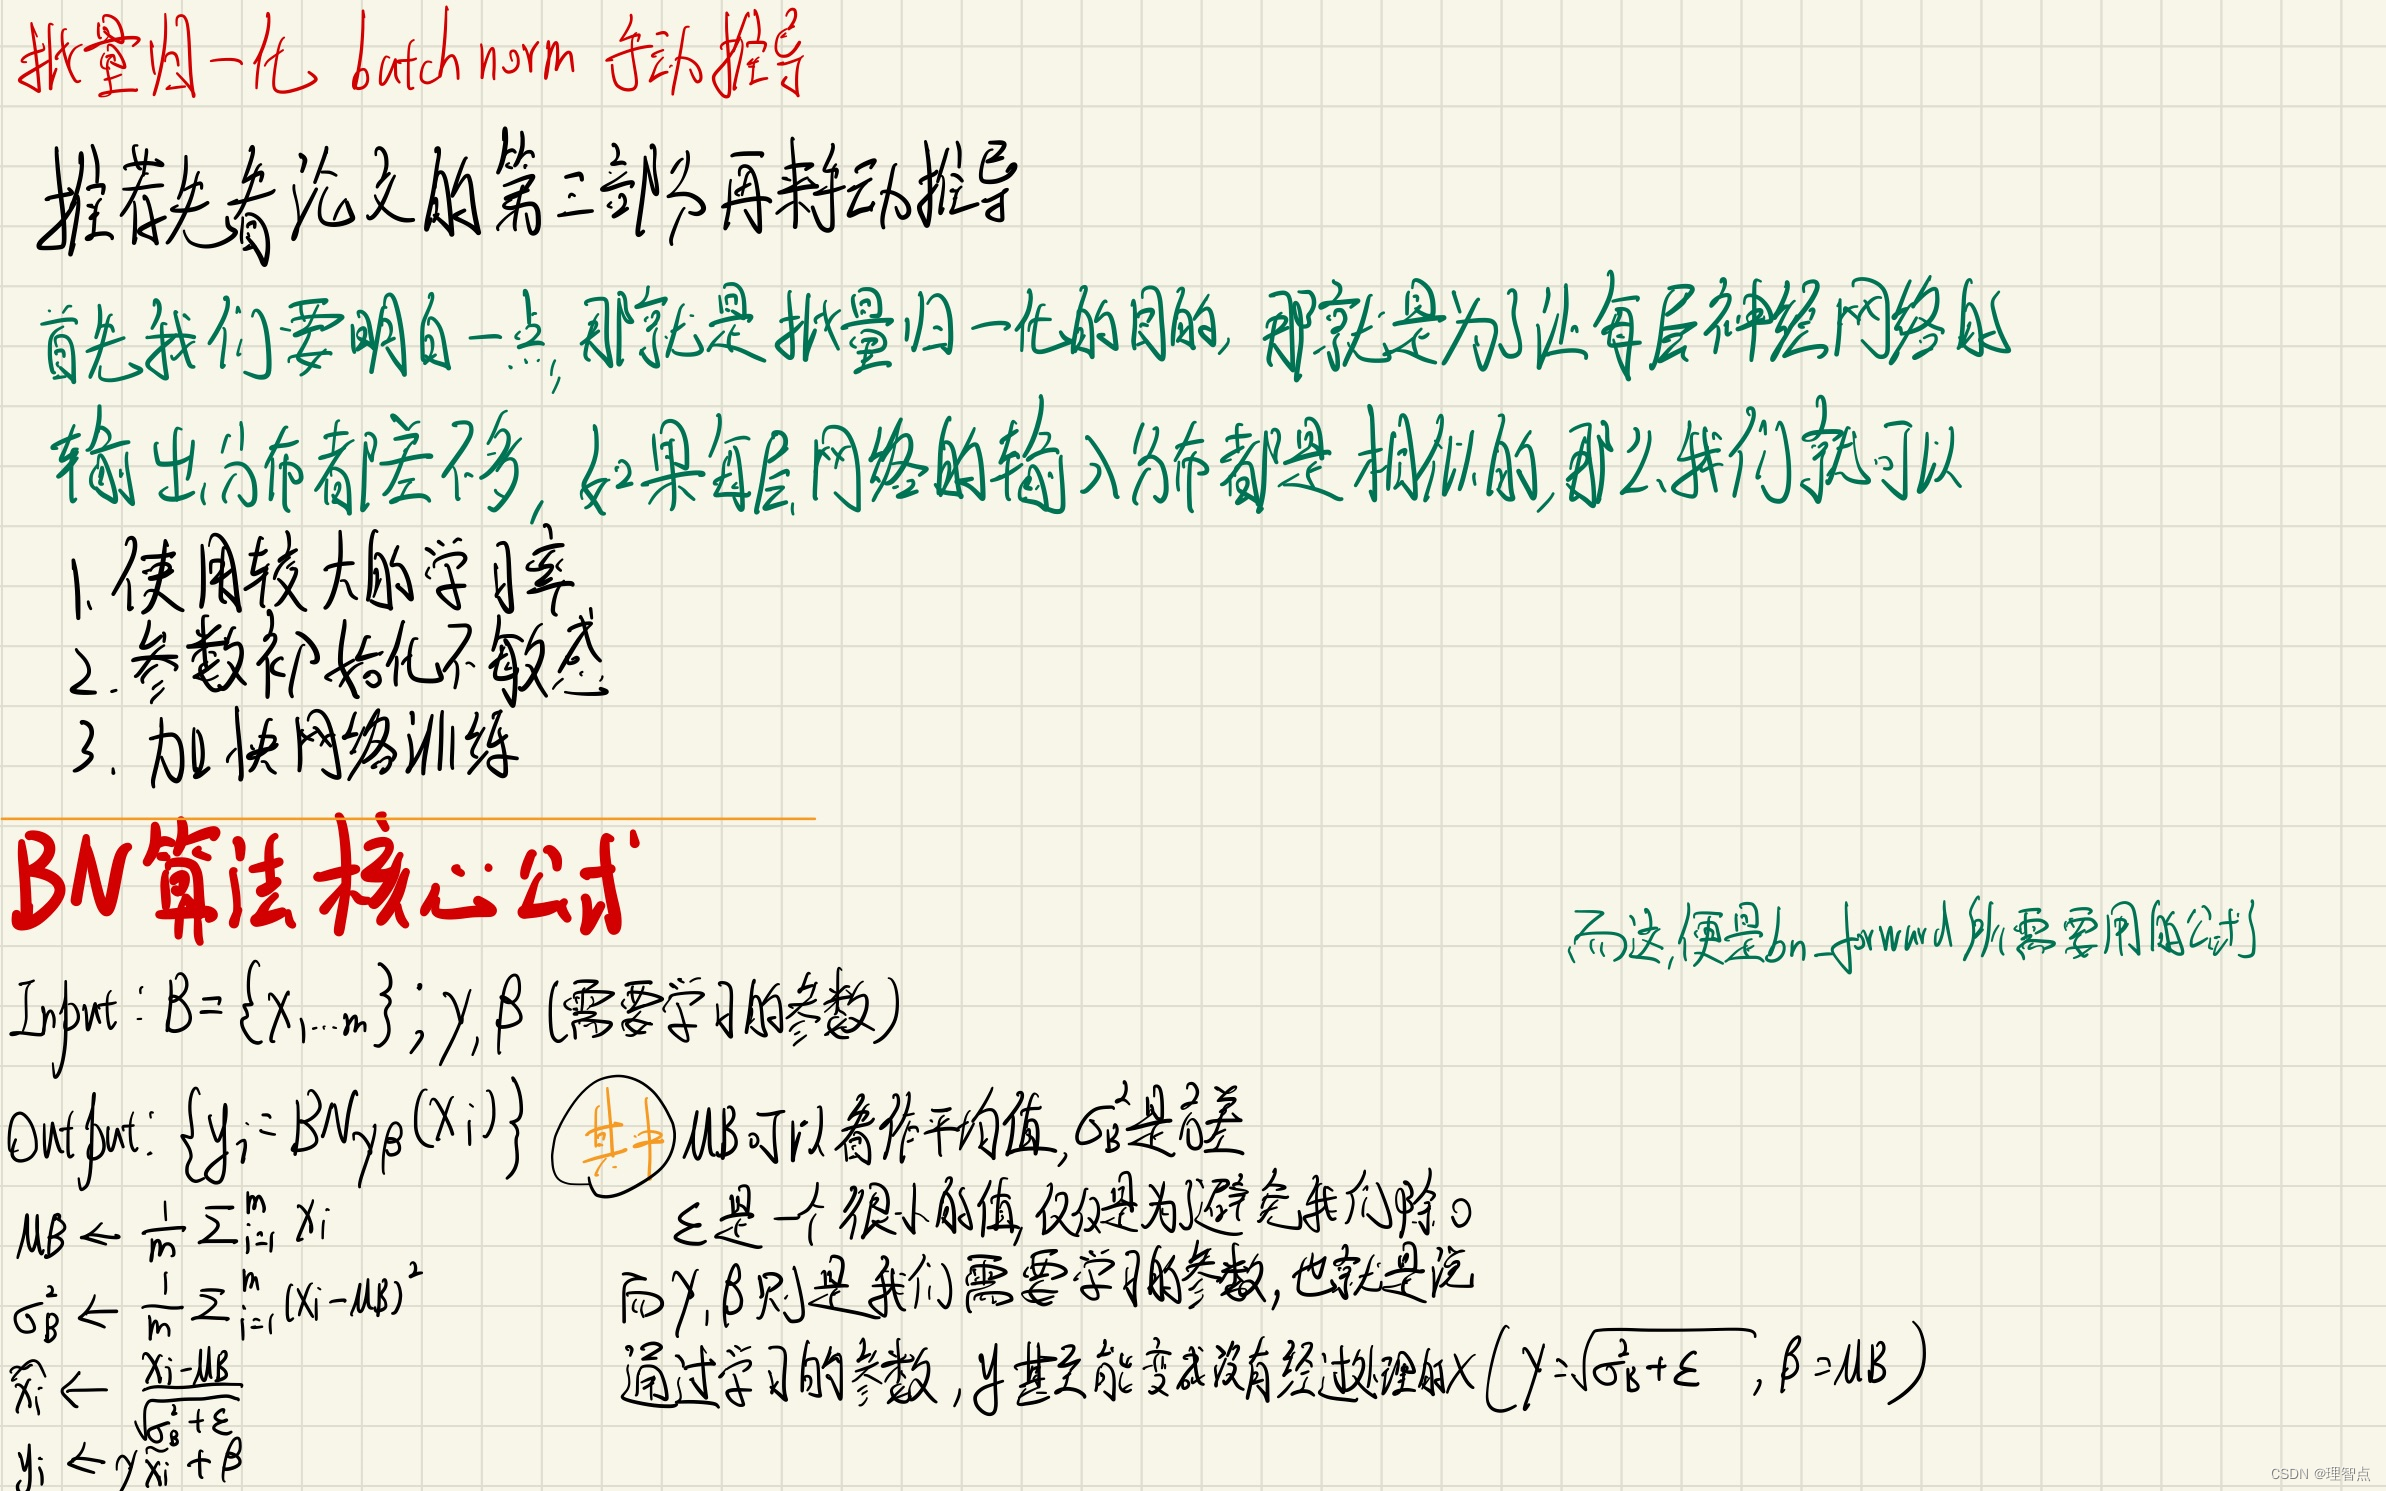 批量归一化 batch norm 手动推导
推荐先看论文的第三部分再来手动推导
首先我们要明白一点,那就是批量归一化的目的,那就是为了让每层神经网络的
输出分布都差不多,如果每层网络的输入分布都是相似的,那么我们就可以
1. 使用较大的学习率
2. 参数初始化不敏感
3. 加快网络训练
BN算法核心公式
而这便是bn_forward所需要用的公式
Input: B={x₁...m}; γ,β(需要学习的参数)
Output: {yi=BNγβ(xi)}
其中 μB可以看作平均值,σ²B是方差
ε是一个很小的值,仅仅是为了避免我们除0
而γ,β则是我们需要学习的参数,也就是说
通过学习的参数,y甚至能变成没有经过处理的x(γ=√(σ²B+ε),β=μB)
μB ← 1/m Σᵐᵢ₌₁ xi
σ²B ← 1/m Σᵐᵢ₌₁ (xi-μB)²
x̂i ← (xi-μB)/√(σ²B+ε)
yi ← γx̃i+β
CSDN @理智点